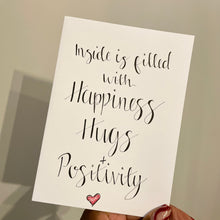 Inside is filled
with
Happiness
Hugs
+
Positivity